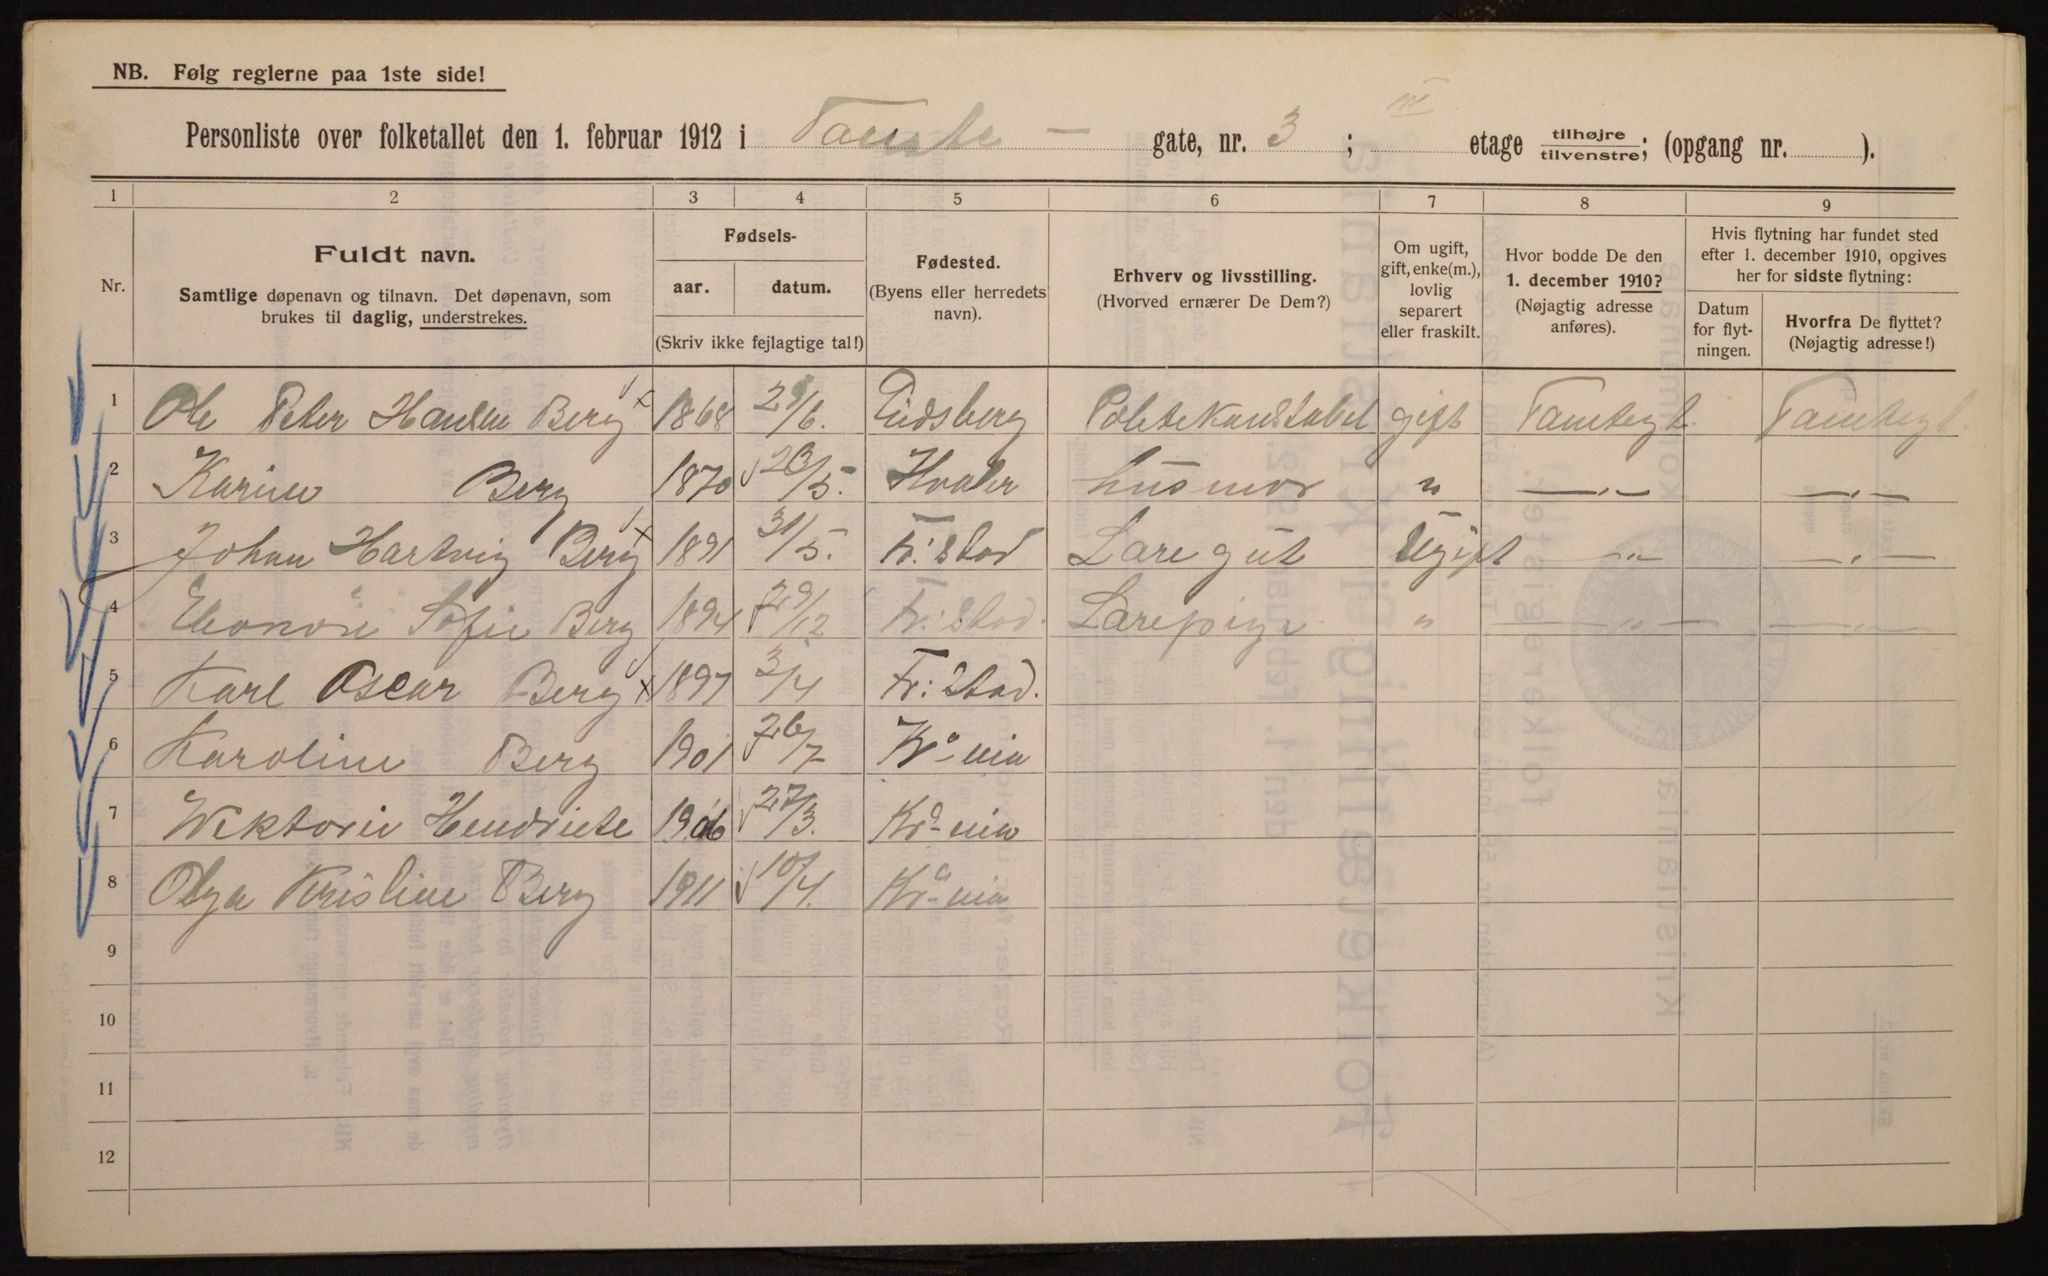 NB. Følg reglerne paa 1ste side!
Personliste over folketallet den 1. februar 1912 i Tamte- gate, nr. 3; III etage tilhøjre/tilvenstre; (opgang nr. ).
1 2 3 4 5 6 7 8 9
Nr.
Fuldt navn.
Samtlige døpenavn og tilnavn. Det døpenavn, som
brukes til daglig, understrekes.
Fødsels-
aar. datum.
(Skriv ikke fejlagtige tal!)
Fødested.
(Byens eller herredets
navn).
Erhverv og livsstilling.
(Hvorved ernærer De Dem?)
Om ugift,
gift, enke(m.),
lovlig
separert
eller fraskilt.
Hvor bodde De den
1. december 1910?
(Nøjagtig adresse
anføres).
Hvis flytning har fundet sted
efter 1. december 1910, opgives
her for sidste flytning:
Datum
for flyt-
ningen.
Hvorfra De flyttet?
(Nøjagtig adresse!)
1 Ole Peter Hansen Berg 1868 29/6. Eidsberg Politekonstabel gift Tamtegt. Tamtegt.
2 Karine Berg 1870 20/5. Hvaler husmor " —"— —"—
3 Johan Hartvig Berg 1891 31/5. Fr: Stad Laregut Ugift —"— —"—
4 Eleonore Sofie Berg 1894 29/12 Fr: Stad. Larepige " —"— —"—
5 Karl Oscar Berg 1897 3/4 Fr: Stad.
6 Karoline Berg 1901 26/7 Kra-nia
7 Wiktorie Hendriete 1906 27/3. Kra-nia
8 Olga Kristine Berg 1911 10/4. Kra-nia
9
10
11
12